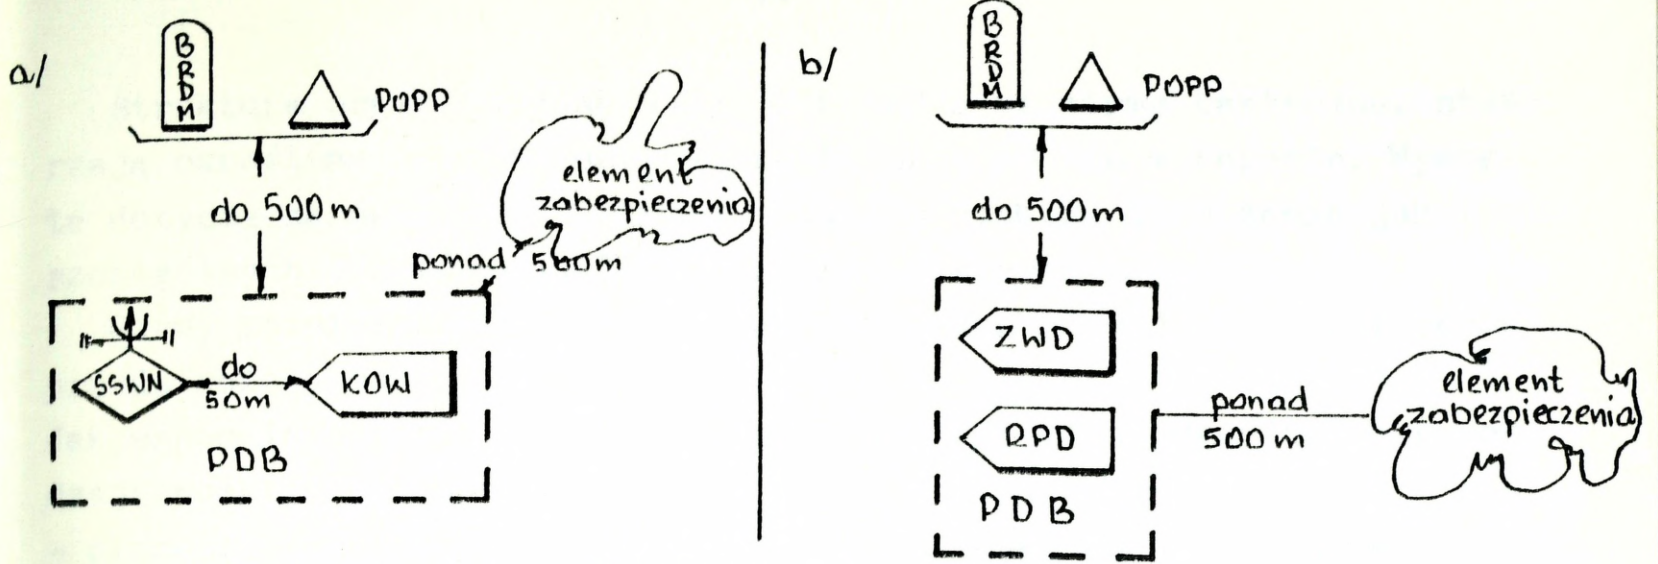 a/
BRDM
POPP
do 500m
element
zabezpieczenia
ponad 500m
SSWN
do
50m
KOW
PDB
b/
BRDM
POPP
do 500m
ZWD
RPD
PDB
ponad
500m
element
zabezpieczenia